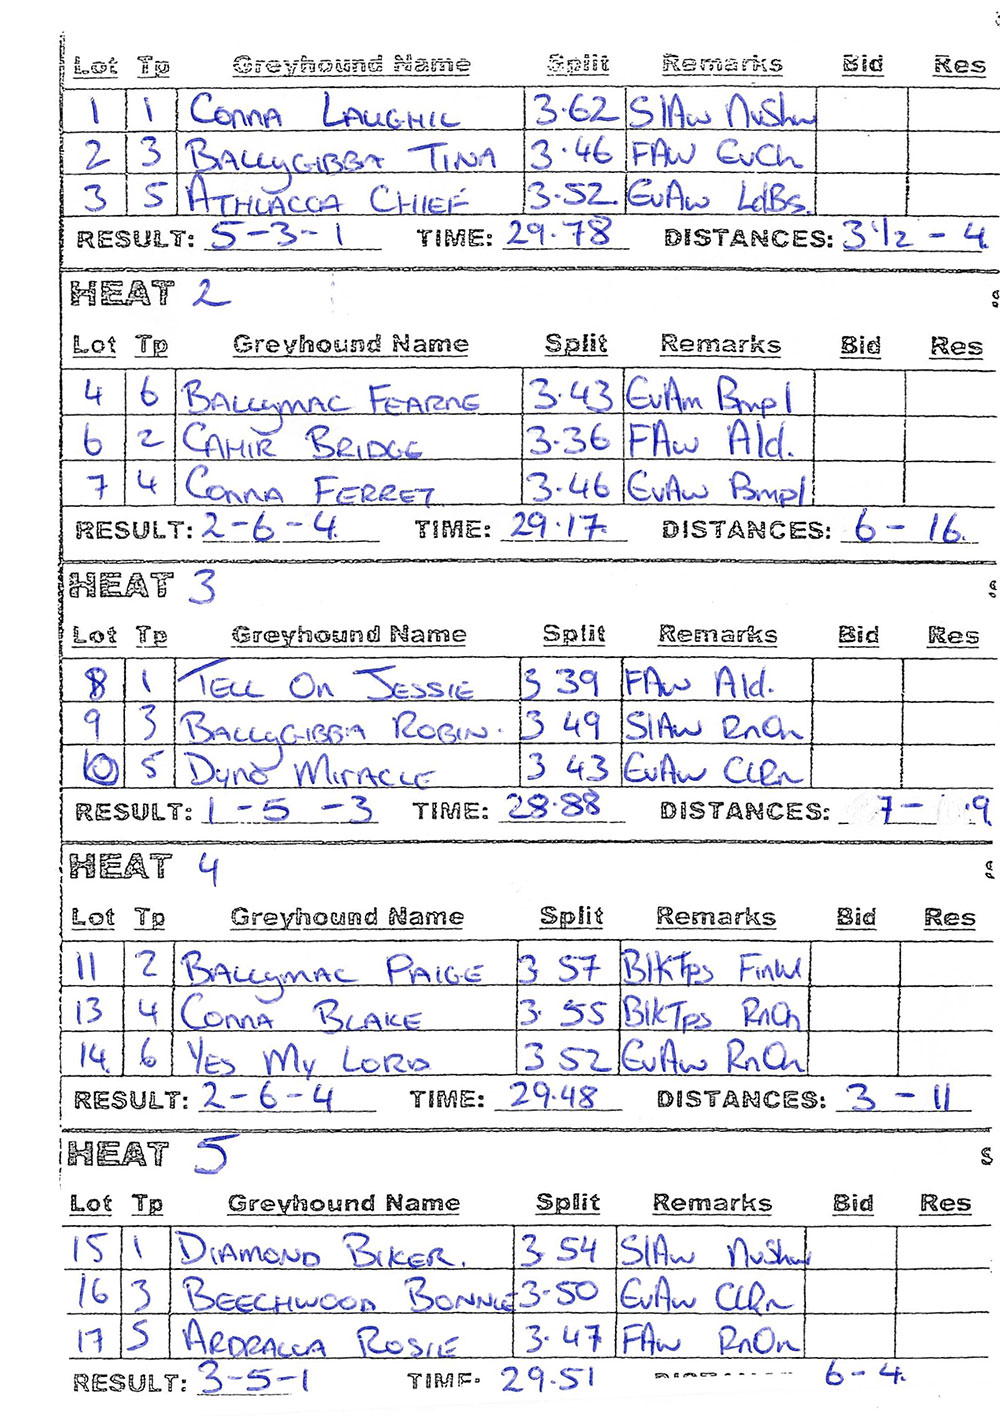 Lot Tp Greyhound Name Split Remarks Bid Res
1 1 CONNA LAUGHIL 3.62 SlAw NvShw
2 3 BALLYGIBBA TINA 3.46 FAw EvCh
3 5 ATHLACCA CHIEF 3.52. EvAw LdBs.
RESULT: 5-3-1 TIME: 29.78 DISTANCES: 3 1/2 - 4
HEAT 2
Lot Tp Greyhound Name Split Remarks Bid Res
4 6 BALLYMAC FEARNE 3.43 EvAw Bmp1
6 2 CAHIR BRIDGE 3.36 FAw Ald.
7 4 CONNA FERRET 3.46 EvAw Bmp1
RESULT: 2-6-4. TIME: 29.17. DISTANCES: 6 - 16.
HEAT 3
Lot Tp Greyhound Name Split Remarks Bid Res
8 1 TELL ON JESSIE 3 39 FAw Ald.
9 3 BALLYGIBBA ROBIN. 3 49 SlAw RnOn
10 5 DYNO MIRACLE 3 43 EvAw ClRn
RESULT: 1-5-3 TIME: 28.88 DISTANCES: 7 - .9
HEAT 4
Lot Tp Greyhound Name Split Remarks Bid Res
11 2 BALLYMAC PAIGE 3 57 BlkTps FinWl
13 4 CONNA BLAKE 3. 55 BlkTps RnOn
14. 6 YES MY LORD 3 52 EvAw RnOn
RESULT: 2-6-4 TIME: 29.48 DISTANCES: 3 - 11
HEAT 5
Lot Tp Greyhound Name Split Remarks Bid Res
15 1 DIAMOND BIKER. 3.54 SlAw NvShw
16 3 BEECHWOOD BONNIE 3.50 EvAw ClRn
17 5 ARDRACCA ROSIE 3.47 FAw RnOn
RESULT: 3-5-1 TIME: 29.51 6-4.